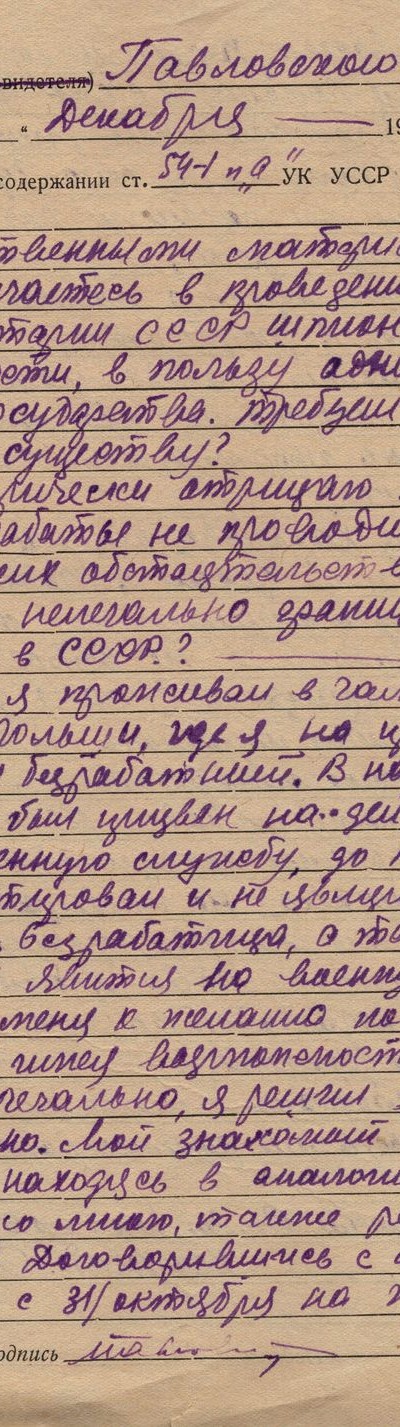 видетеля) Павловского
" Декабря — 19
содержании ст. 54-1 п "а" УК УССР
твенными матери
чаетесь в проведени
тории СССР шпион
сти, в пользу одно
осударства. Требуем
существу?
рически отрицаю
работы не проводи
ких обстоятельств
нелегально границ
в СССР? —
я проживал в гал
Польши, где я на
безработный. В но
был призван на де
енную службу, до
тировал и не явил
безработица, а та
явится на военну
меня к желанию по
имея возможност
легально, я решил
но. Мой знакомый
находясь в аналоги
со мною, также ре
Договорившись с
с 31/октября на
одпись